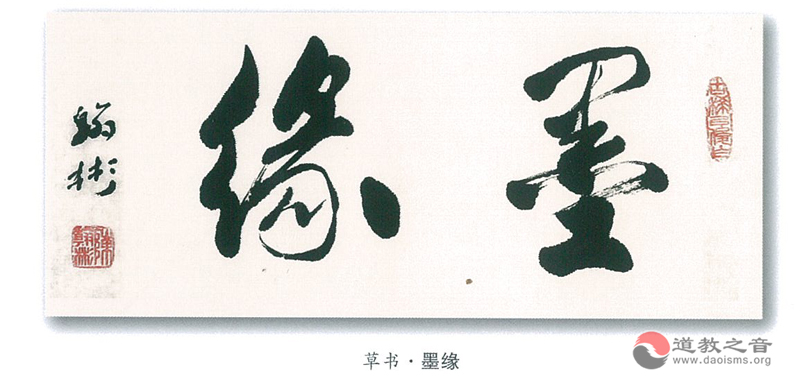 墨缘
翰彬
草书·墨缘
道教之音
www.daoisms.org